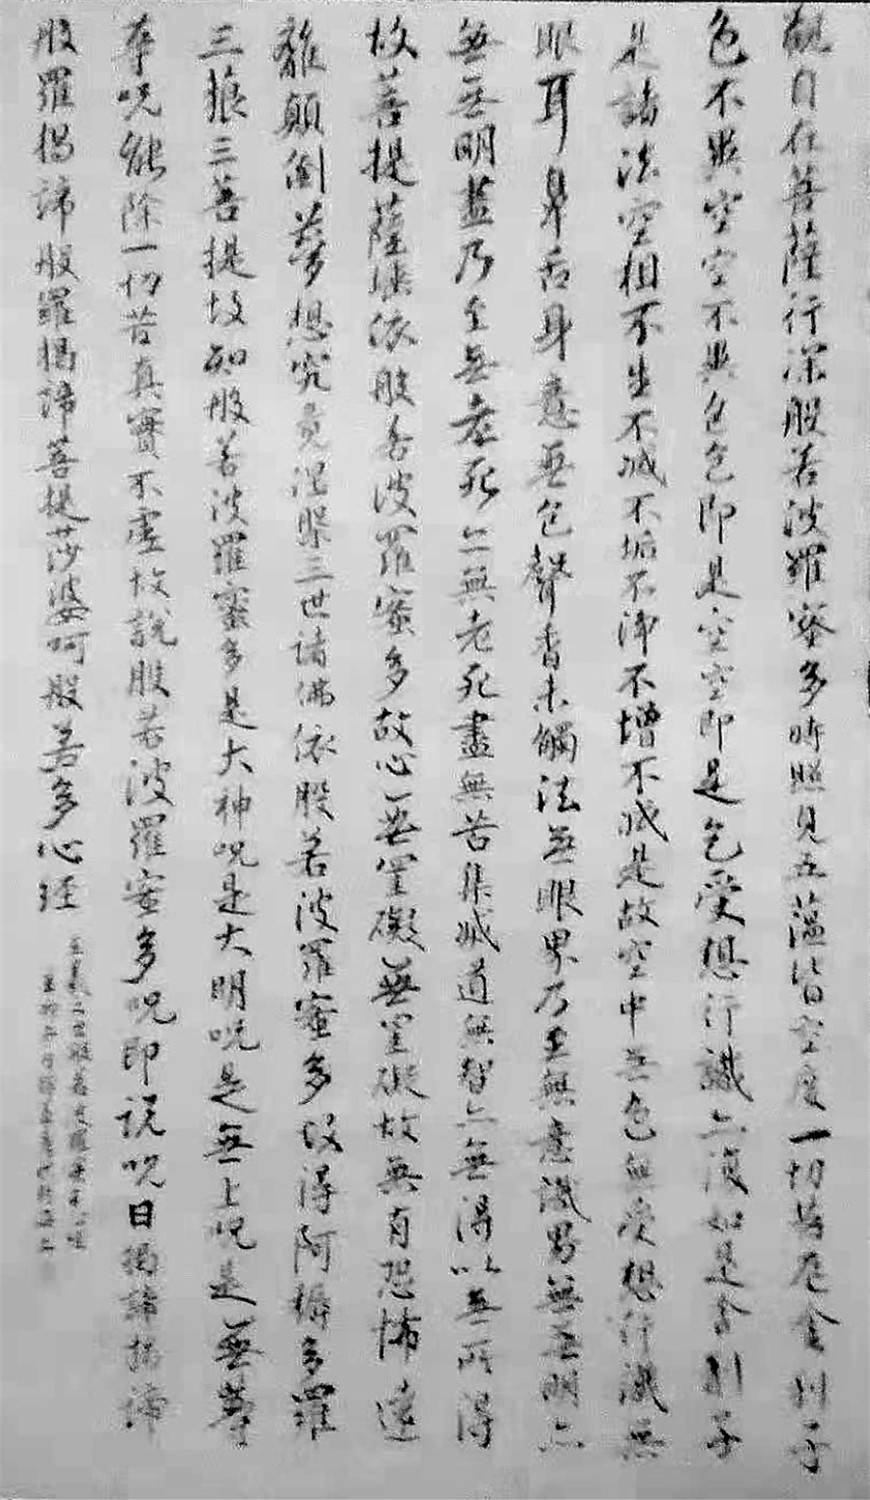 觀自在菩薩行深般若波羅蜜多時照見五蘊皆空度一切苦厄舍利子
色不異空空不異色色即是空空即是色受想行識亦復如是舍利子
是諸法空相不生不滅不垢不淨不增不減是故空中無色無受想行識無
眼耳鼻舌身意無色聲香味觸法無眼界乃至無意識界無無明亦
無無明盡乃至無老死亦無老死盡無苦集滅道無智亦無得以無所得
故菩提薩埵依般若波羅蜜多故心無罣礙無罣礙故無有恐怖遠
離顛倒夢想究竟涅槃三世諸佛依般若波羅蜜多故得阿耨多羅
三藐三菩提故知般若波羅蜜多是大神呪是大明呪是無上呪是無等
等呪能除一切苦真實不虛故說般若波羅蜜多呪即說呪曰揭諦揭諦
般羅揭諦般羅揭諦菩提莎婆呵般若多心経